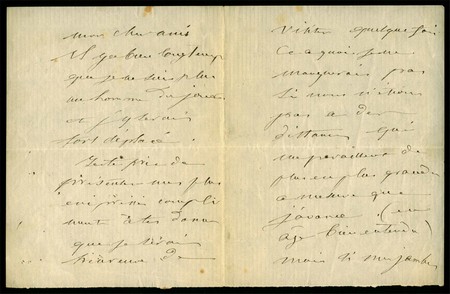 mon cher ami
Il y a bien longtemps
que je ne suis plus
un homme du jour
et j'y serais
fort déplacé.
Je te prie de
présenter mes plus
empressés compli
ments à tes dames
que je serais
heureux de
visiter quelquefois
ce à quoi je ne
manquerais pas
si nous n'étions
pas à des
distances qui
me paraissent de
plus en plus grandes
à mesure que
j'avance (en
âge bien entendu)
mais si mes jambes